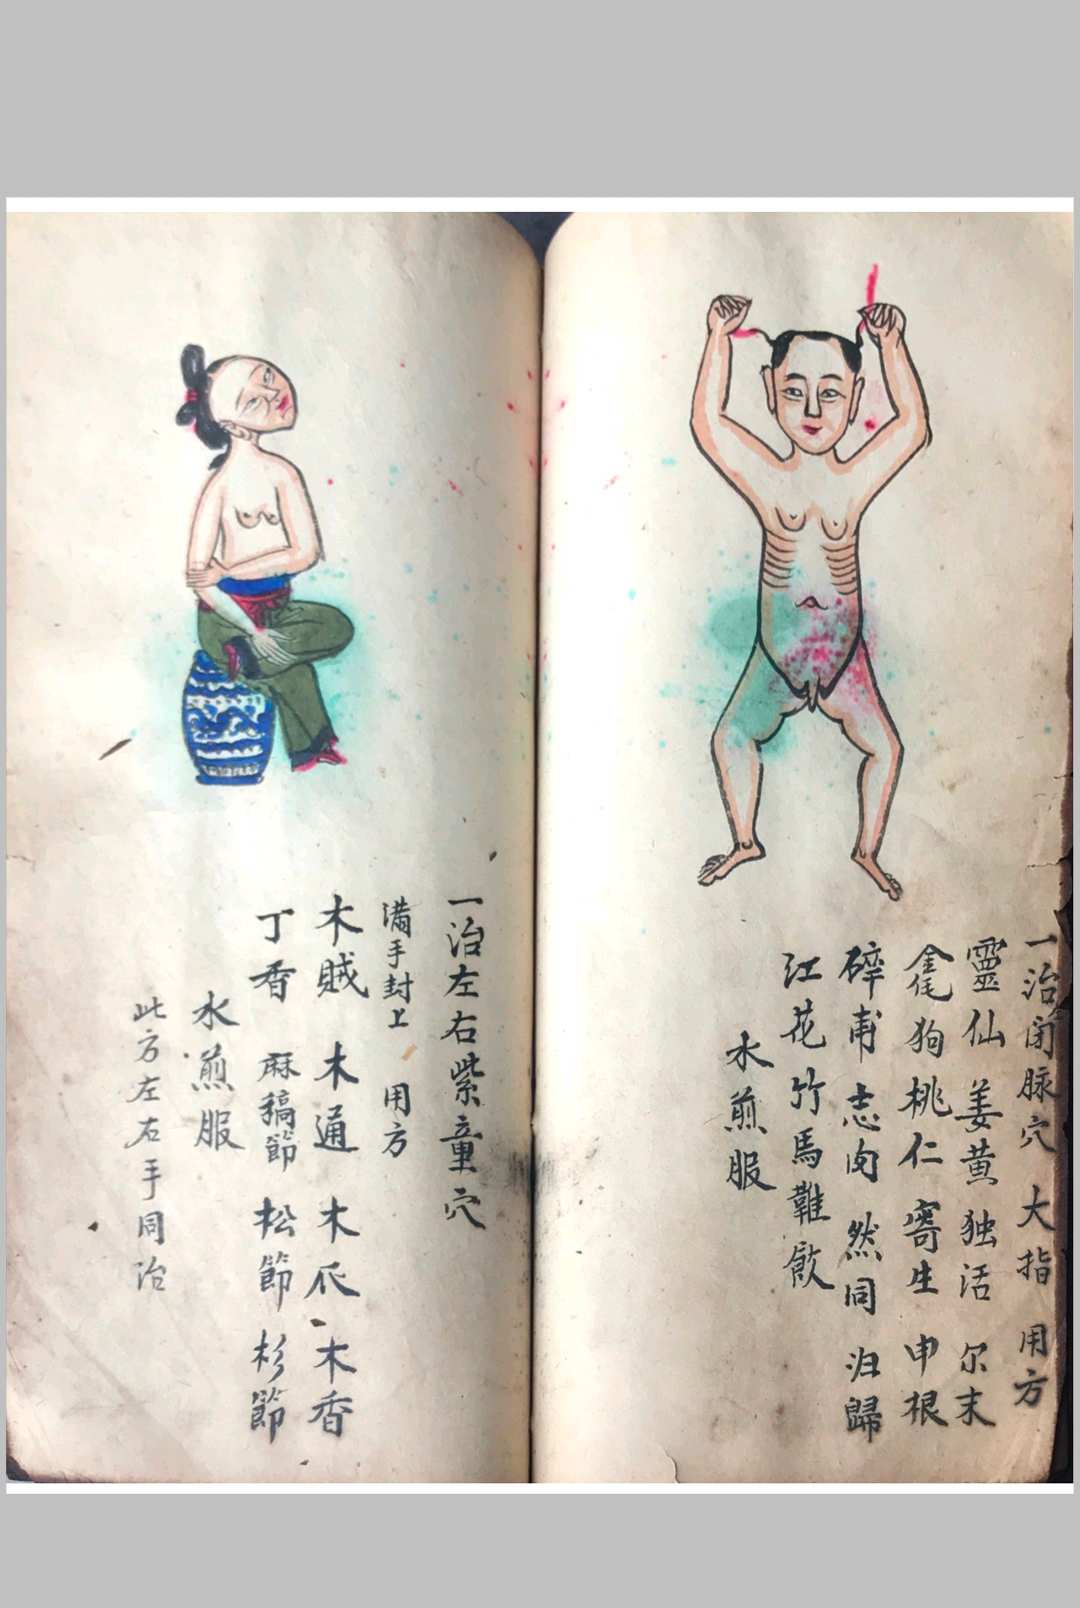 一治闭脉穴 大指 用方
靈仙 姜黄 独活 尔末
金毛狗 桃仁 寄生 申根
碎甫 志肉 然同 归歸
江花 竹馬難飲
水煎服
一治左右紫童穴
满手封上 用方
木賊 木通 木瓜 木香
丁香 麻稿節 松節 杉節
水煎服
此方左右手同治